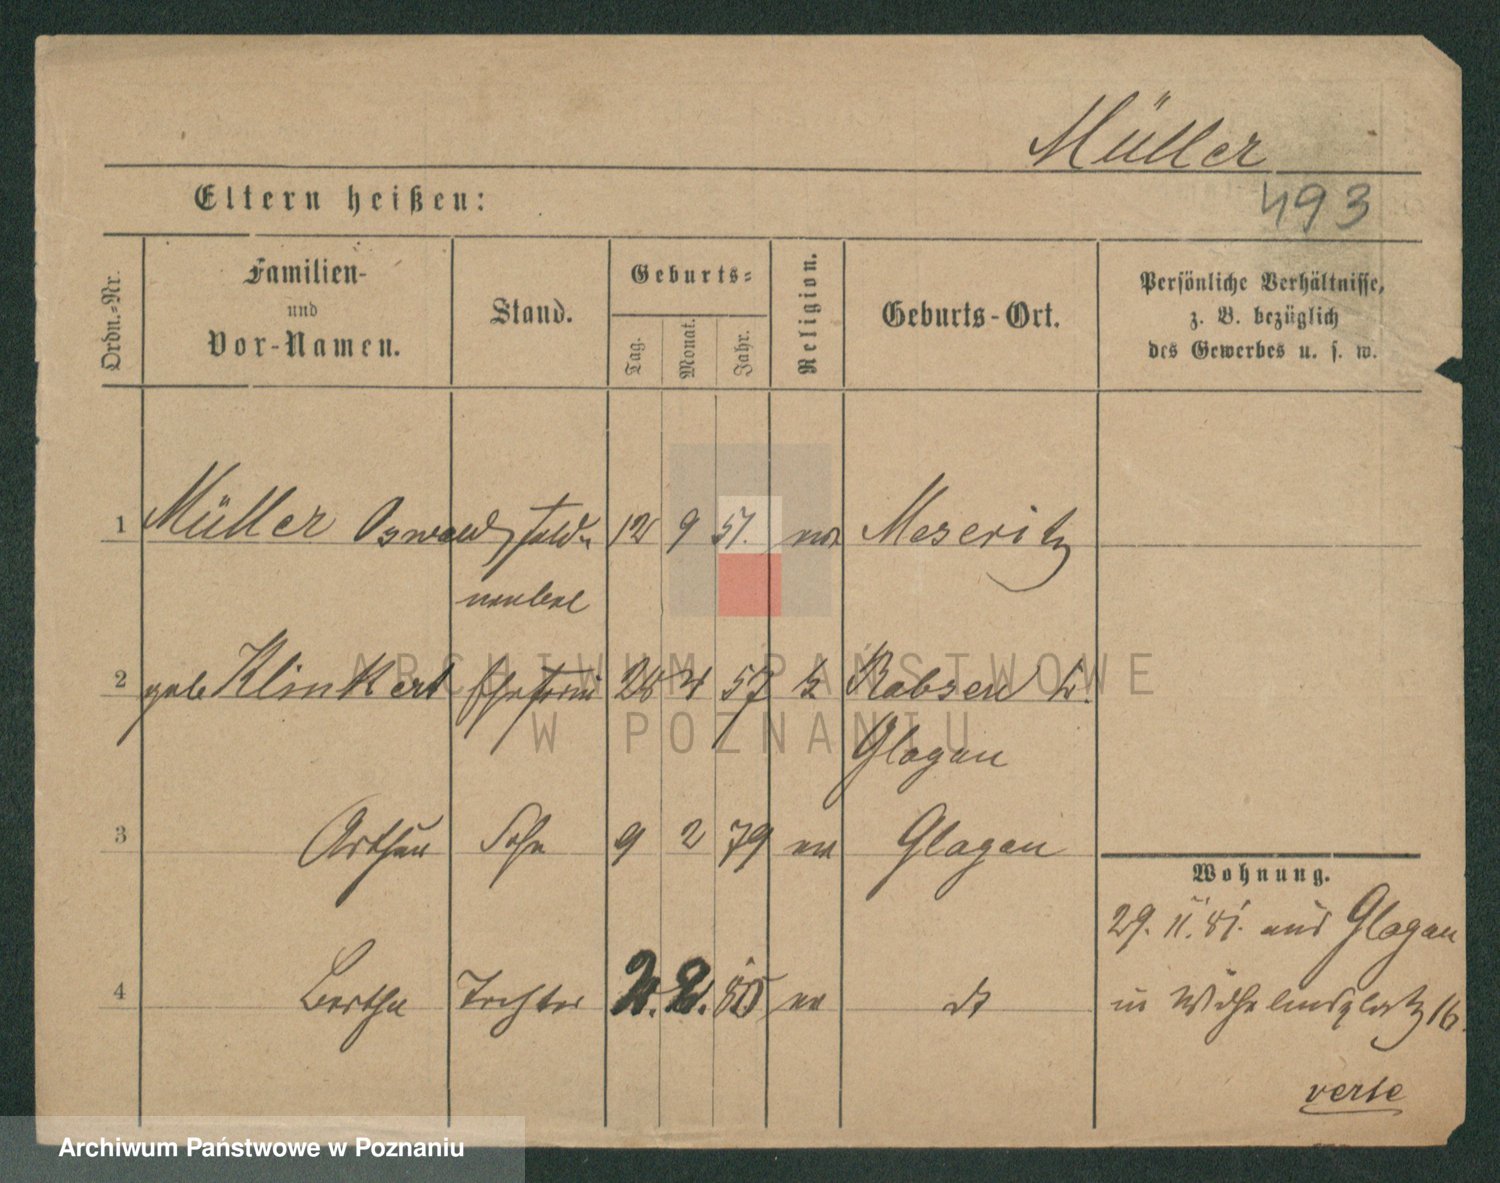 Müller
493
Eltern heißen:
Ordn.-Nr.
Familien-
und
Vor-Namen.
Stand.
Geburts-
Tag.
Monat.
Jahr.
Religion.
Geburts-Ort.
Persönliche Verhältnisse,
z. B. bezüglich
des Gewerbes u. s. w.
1 Müller Oswald 12 9 51. Meseritz
2 geb Klinkert Ehefrau 28 57 Rabsen b.
Glogau
3 Arthur Sohn 9 2 79 Glogau
4 Bertha Tochter 2. 80 dt
Wohnung.
29. 11. 81. aus Glogau
in Wilhelmsplatz 16.
verte
ARCHIWUM PAŃSTWOWE
W POZNANIU
Archiwum Państwowe w Poznaniu